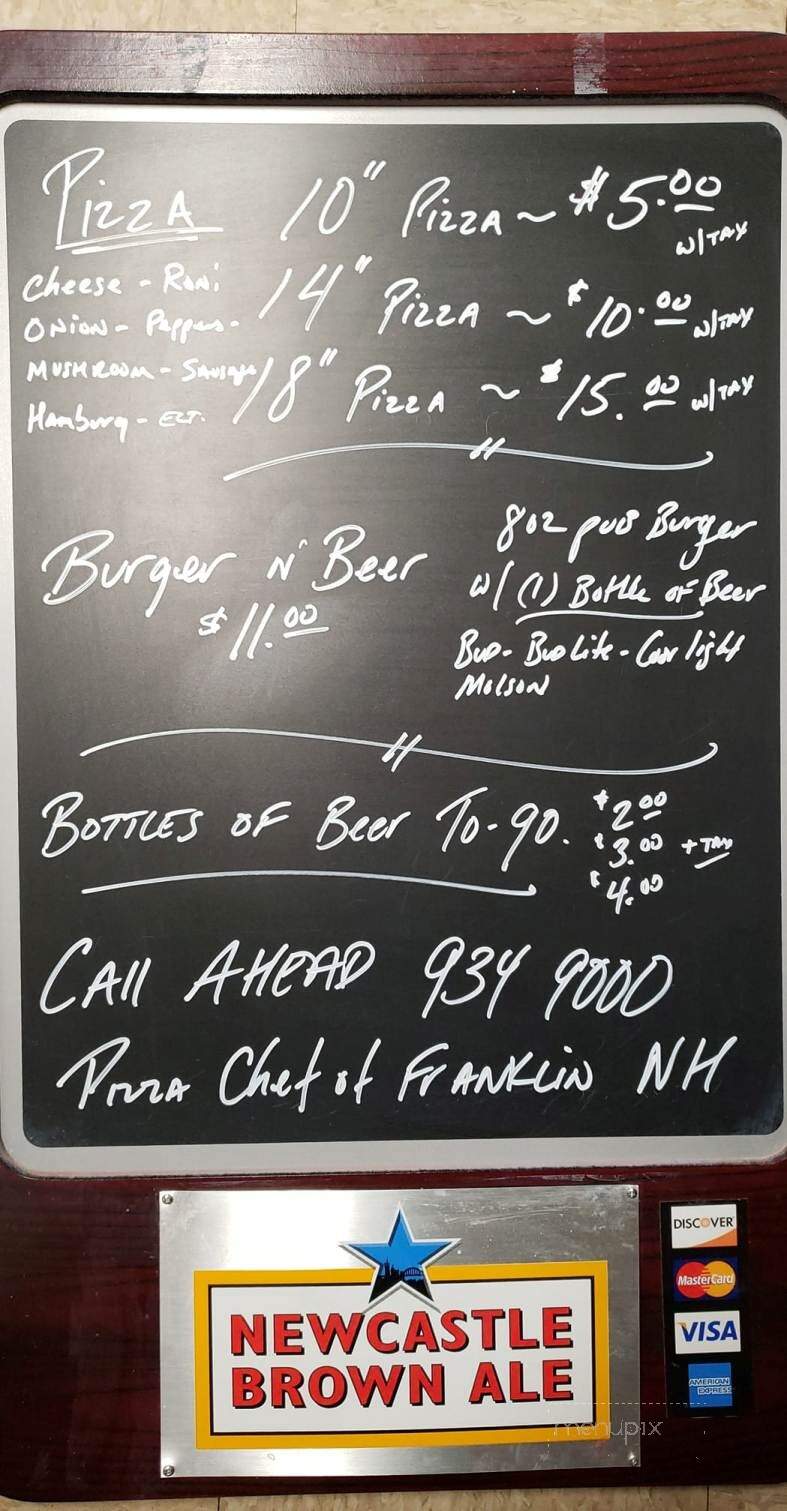 PIZZA 10" PIZZA ~ $5.00 w/TAX
Cheese - Roni
14" PIZZA ~ $10.00 w/TAX
ONION - Peppers -
MUSHROOM - Sausage
18" PIZZA ~ $15.00 w/TAX
Hamburg -
Burger N' Beer
$11.00
8oz pub Burger
w/ (1) Bottle of Beer
Bud - Bud Lite - Coor light
Molson
BOTTLES OF Beer To-go. $2.00
$3.00 + TAX
$4.00
CAll AHEAD 934 9000
PIZZA Chef of FRANKLIN NH
NEWCASTLE
BROWN ALE
DISCOVER
MasterCard
VISA
AMERICAN
EXPRESS
menupix